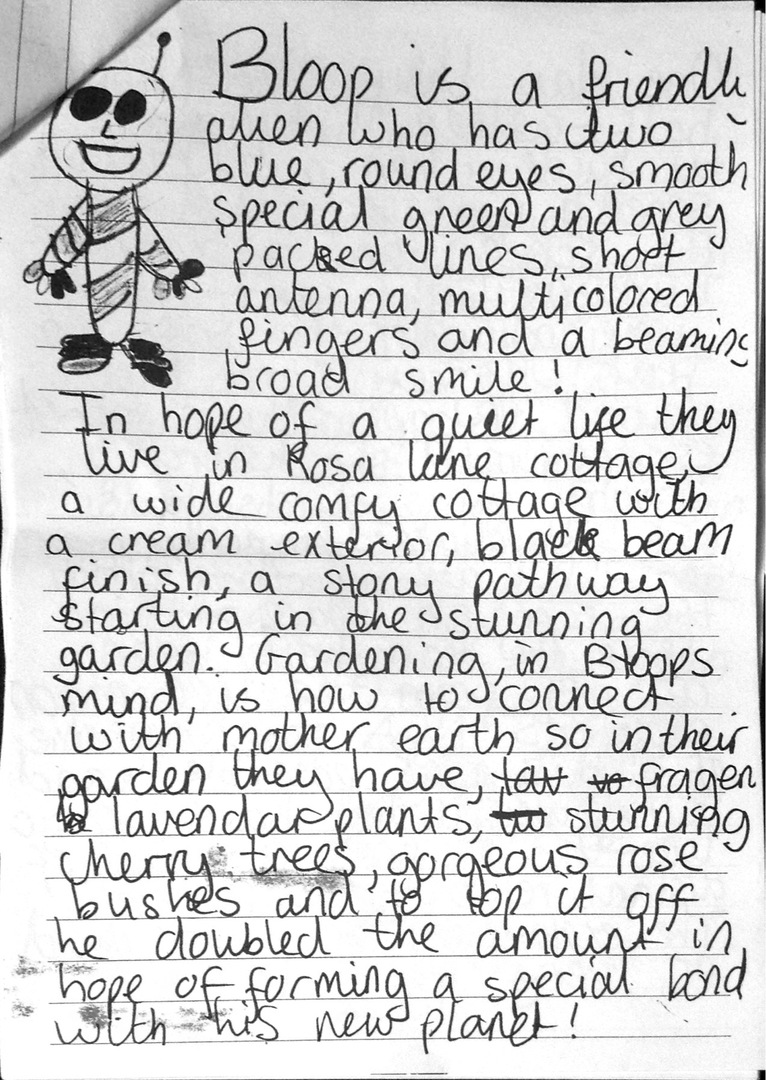 Bloop is a friendl
alien who has two
blue, round eyes, smooth
special green and grey
packed lines, short
antenna, multicolored
fingers and a beaming
broad smile!
In hope of a quiet life they
live in Rosa lane cottage,
a wide comfy cottage with
a cream exterior, black beam
finish, a stony pathway
starting in the stunning
garden. Gardening, in Bloops
mind, is how to connect
with mother earth so in their
garden they have, fragen
lavendar plants, stunning
cherry trees, gorgeous rose
bushes and to top it off
he doubled the amount in
hope of forming a special bond
with his new planet!